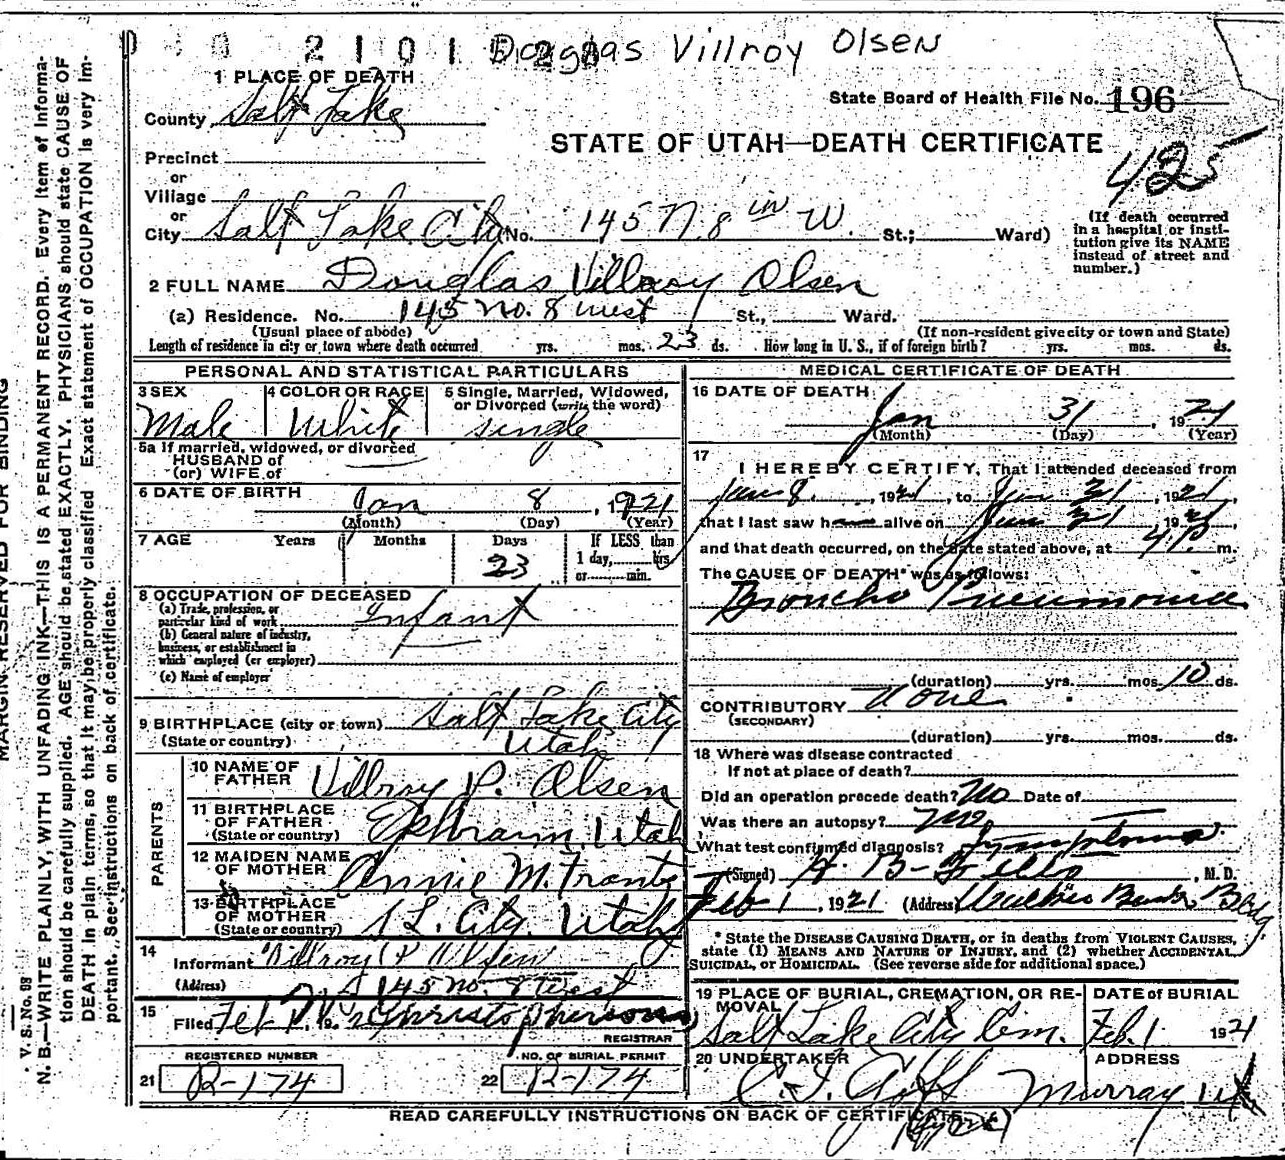 2 1 0 1 Douglas Villroy Olsen
1 PLACE OF DEATH
County Salt Lake
State Board of Health File No. 196
STATE OF UTAH—DEATH CERTIFICATE
425
Precinct
or
Village
or
City Salt Lake City No. 145 N. 8 W. St.; Ward)
(If death occurred
in a hospital or insti-
tution give its NAME
instead of street and
number.)
2 FULL NAME Douglas Villroy Olsen
(a) Residence. No. 145 no. 8 west St., Ward.
(Usual place of abode) (If non-resident give city or town and State)
Length of residence in city or town where death occurred yrs. mos. 23 ds. How long in U. S., if of foreign birth? yrs. mos. ds.
PERSONAL AND STATISTICAL PARTICULARS
3 SEX
Male
4 COLOR OR RACE
White
5 Single, Married, Widowed,
or Divorced (write the word)
single
5a If married, widowed, or divorced
HUSBAND of
(or) WIFE of
6 DATE OF BIRTH
Jan 8, 1921
(Month) (Day) (Year)
7 AGE Years Months Days If LESS than
1 day, hrs
or min.
23
8 OCCUPATION OF DECEASED
(a) Trade, profession, or
particular kind of work Infant
(b) General nature of industry,
business, or establishment in
which employed (or employer)
(c) Name of employer
9 BIRTHPLACE (city or town) Salt Lake City
(State or country) Utah
PARENTS
10 NAME OF
FATHER Villroy P. Olsen
11 BIRTHPLACE
OF FATHER
(State or country) Ephraim, Utah
12 MAIDEN NAME
OF MOTHER Annie M. Frantz
13 BIRTHPLACE
OF MOTHER
(State or country) S L. City, Utah
14
Informant Villroy P Olsen
(Address) 145 no. 8 West
15
Filed Feb 1, 19
REGISTRAR
REGISTERED NUMBER
21 R-174
NO. OF BURIAL PERMIT
22 R-174
MEDICAL CERTIFICATE OF DEATH
16 DATE OF DEATH
Jan 31, 1921
(Month) (Day) (Year)
17
I HEREBY CERTIFY, That I attended deceased from
Jan 8, 1921, to Jan 31, 1921,
that I last saw h alive on Jan 31, 1921,
and that death occurred, on the date stated above, at 4 P. m.
The CAUSE OF DEATH* was as follows:
Broncho Pneumonia
(duration) yrs. mos. 10 ds.
CONTRIBUTORY None
(SECONDARY)
(duration) yrs. mos. ds.
18 Where was disease contracted
If not at place of death?
Did an operation precede death? No Date of
Was there an autopsy? No
What test confirmed diagnosis? Symptoms
(Signed) , M. D.
Feb 1, 1921 (Address) Walker Bank Bldg.
* State the DISEASE CAUSING DEATH, or in deaths from VIOLENT CAUSES,
state (1) MEANS AND NATURE OF INJURY, and (2) whether ACCIDENTAL,
SUICIDAL, or HOMICIDAL. (See reverse side for additional space.)
19 PLACE OF BURIAL, CREMATION, OR RE-
MOVAL
Salt Lake City Cem.
DATE of BURIAL
Feb. 1 1921
20 UNDERTAKER
ADDRESS
Murray Ut
READ CAREFULLY INSTRUCTIONS ON BACK OF CERTIFICATE.
MARGIN RESERVED FOR BINDING
V. S. No. 98
N. B.—WRITE PLAINLY, WITH UNFADING INK—THIS IS A PERMANENT RECORD. Every item of informa-
tion should be carefully supplied. AGE should be stated EXACTLY. PHYSICIANS should state CAUSE OF
DEATH in plain terms, so that it may be properly classified Exact statement of OCCUPATION is very im-
portant. See instructions on back of certificate.